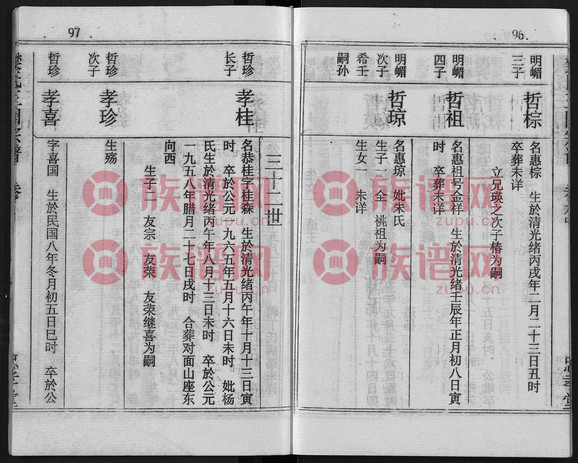 96
明帽
三子
哲棕
名惠棕 生於清光绪丙戌年二月二十三日丑时
卒葬未详
立兄瑛之次子椿为嗣
明帽
四子
哲祖
名惠祖号金祥 生於清光绪壬辰年正月初八日寅
时 卒葬未详
明帽
次子
希壬
嗣孙
哲琼
名惠琼 妣朱氏
生子一 全 祧祖为嗣
生女一 未详
97
三十二世
哲珍
长子
孝桂
名恭桂子桂森 生於清光绪丙午年十月十三日寅
时 卒於公元一九六五年五月十六日未时 妣杨
氏生於清光绪丙午年八月十三日未时 卒於公元
一九五八年腊月二十七日戌时 合葬对面山座东
向西
生子二 友宗 友荣 友荣继喜为嗣
哲珍
次子
孝珍
生殇
哲珍
孝喜
字喜国 生於民国八年冬月初五日巳时 卒於公
族谱网
www.zupu.cn